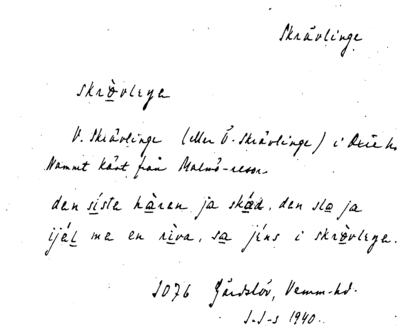 Skrävlinge
skrövleŋa
V. Skrävlinge (eller Ö. Skrävlinge) i Oxie hd
Namnet känt från Malmö-resor.
den sista hären ja skød, den slo ja
ijäl me en riva, sa jíns i skrövleŋa.
1076 Gärdslöv, Vemm. hd.
I.I-s 1940.